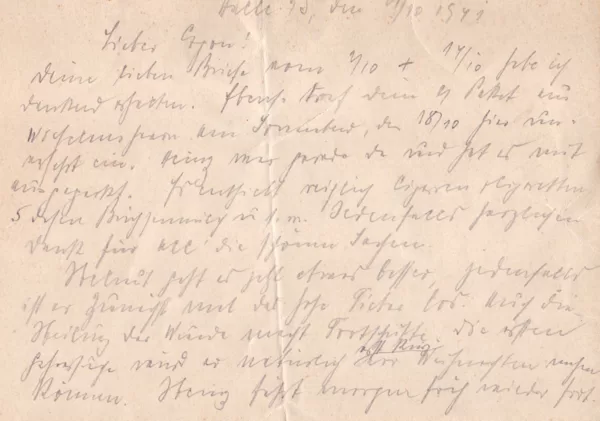 Halle /S, den /10 1941
Lieber Egon!
Deine lieben Briefe vom 9/10 + 14/10 habe ich
dankend erhalten. Ebenso traf dein Paket aus
Wilhelmshaven am Sonnabend, den 18/10 hier un-
versehrt ein. war gerade da und hat es mit
ausgepackt. Es enthielt reichlich Cigarren, Cigaretten
5 Dosen Büchsenmilch u. s. w. Jedenfalls herzlichen
Dank für all' die schönen Sachen.
Helmut geht es jetzt etwas besser, jedenfalls
ist er zunächst mal das hohe Fieber los. Auch die
Heilung der Wunde macht Fortschritte. Die ersten
wird er natürlich erst kurz vor Weihnachten machen
können. Heinz fährt morgen früh wieder fort.